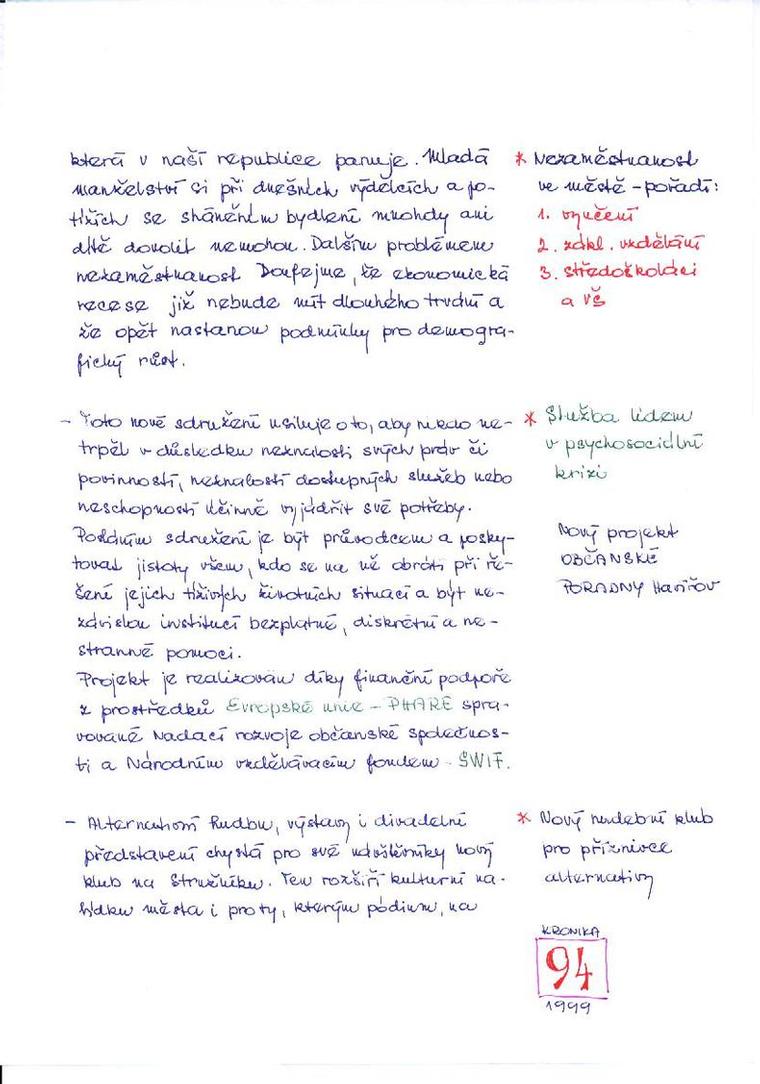 která v naší republice panuje. Mladá
manželství si při dnešních výdělcích a po-
tížích se sháněním bydlení mnohdy ani
dítě dovolit nemohou. Dalším problémem
nezaměstnanost Doufejme, že ekonomická
recese již nebude mít dlouhého trvání a
že opět nastanou podmínky pro demogra-
fický růst.
* Nezaměstnanost
ve městě - pořadí:
1. vyučení
2. zákl. vzdělání
3. středoškoláci
a VŠ
- Toto nové sdružení usiluje o to, aby nikdo ne-
trpěl v důsledku neznalosti svých práv či
povinností, neznalosti dostupných služeb nebo
neschopností účinně vyjádřit své potřeby.
Posláním sdružení je být průvodcem a posky-
tovat jistoty všem, kdo se na ně obrátí při ře-
šení jejich tíživých životních situací a být ne-
závislou institucí bezplatné, diskrétní a ne-
stranné pomoci.
Projekt je realizován díky finanční podpoře
z prostředků Evropské unie - PHARE spra-
vované Nadací rozvoje občanské společnos-
ti a Národním vzdělávacím fondem - SWIF.
* Služba lidem
v psychosociální
krizi
Nový projekt
OBČANSKÉ
PORADNY Havířov
- Alternativní hudbu, výstavy i divadelní
představení chystá pro své návštěvníky nový
klub na Stružníku. Ten rozšíří kulturní na-
bídku města i pro ty, kterým pódium, na
* Nový hudební klub
pro příznivce
alternativy
KRONIKA
94
1999